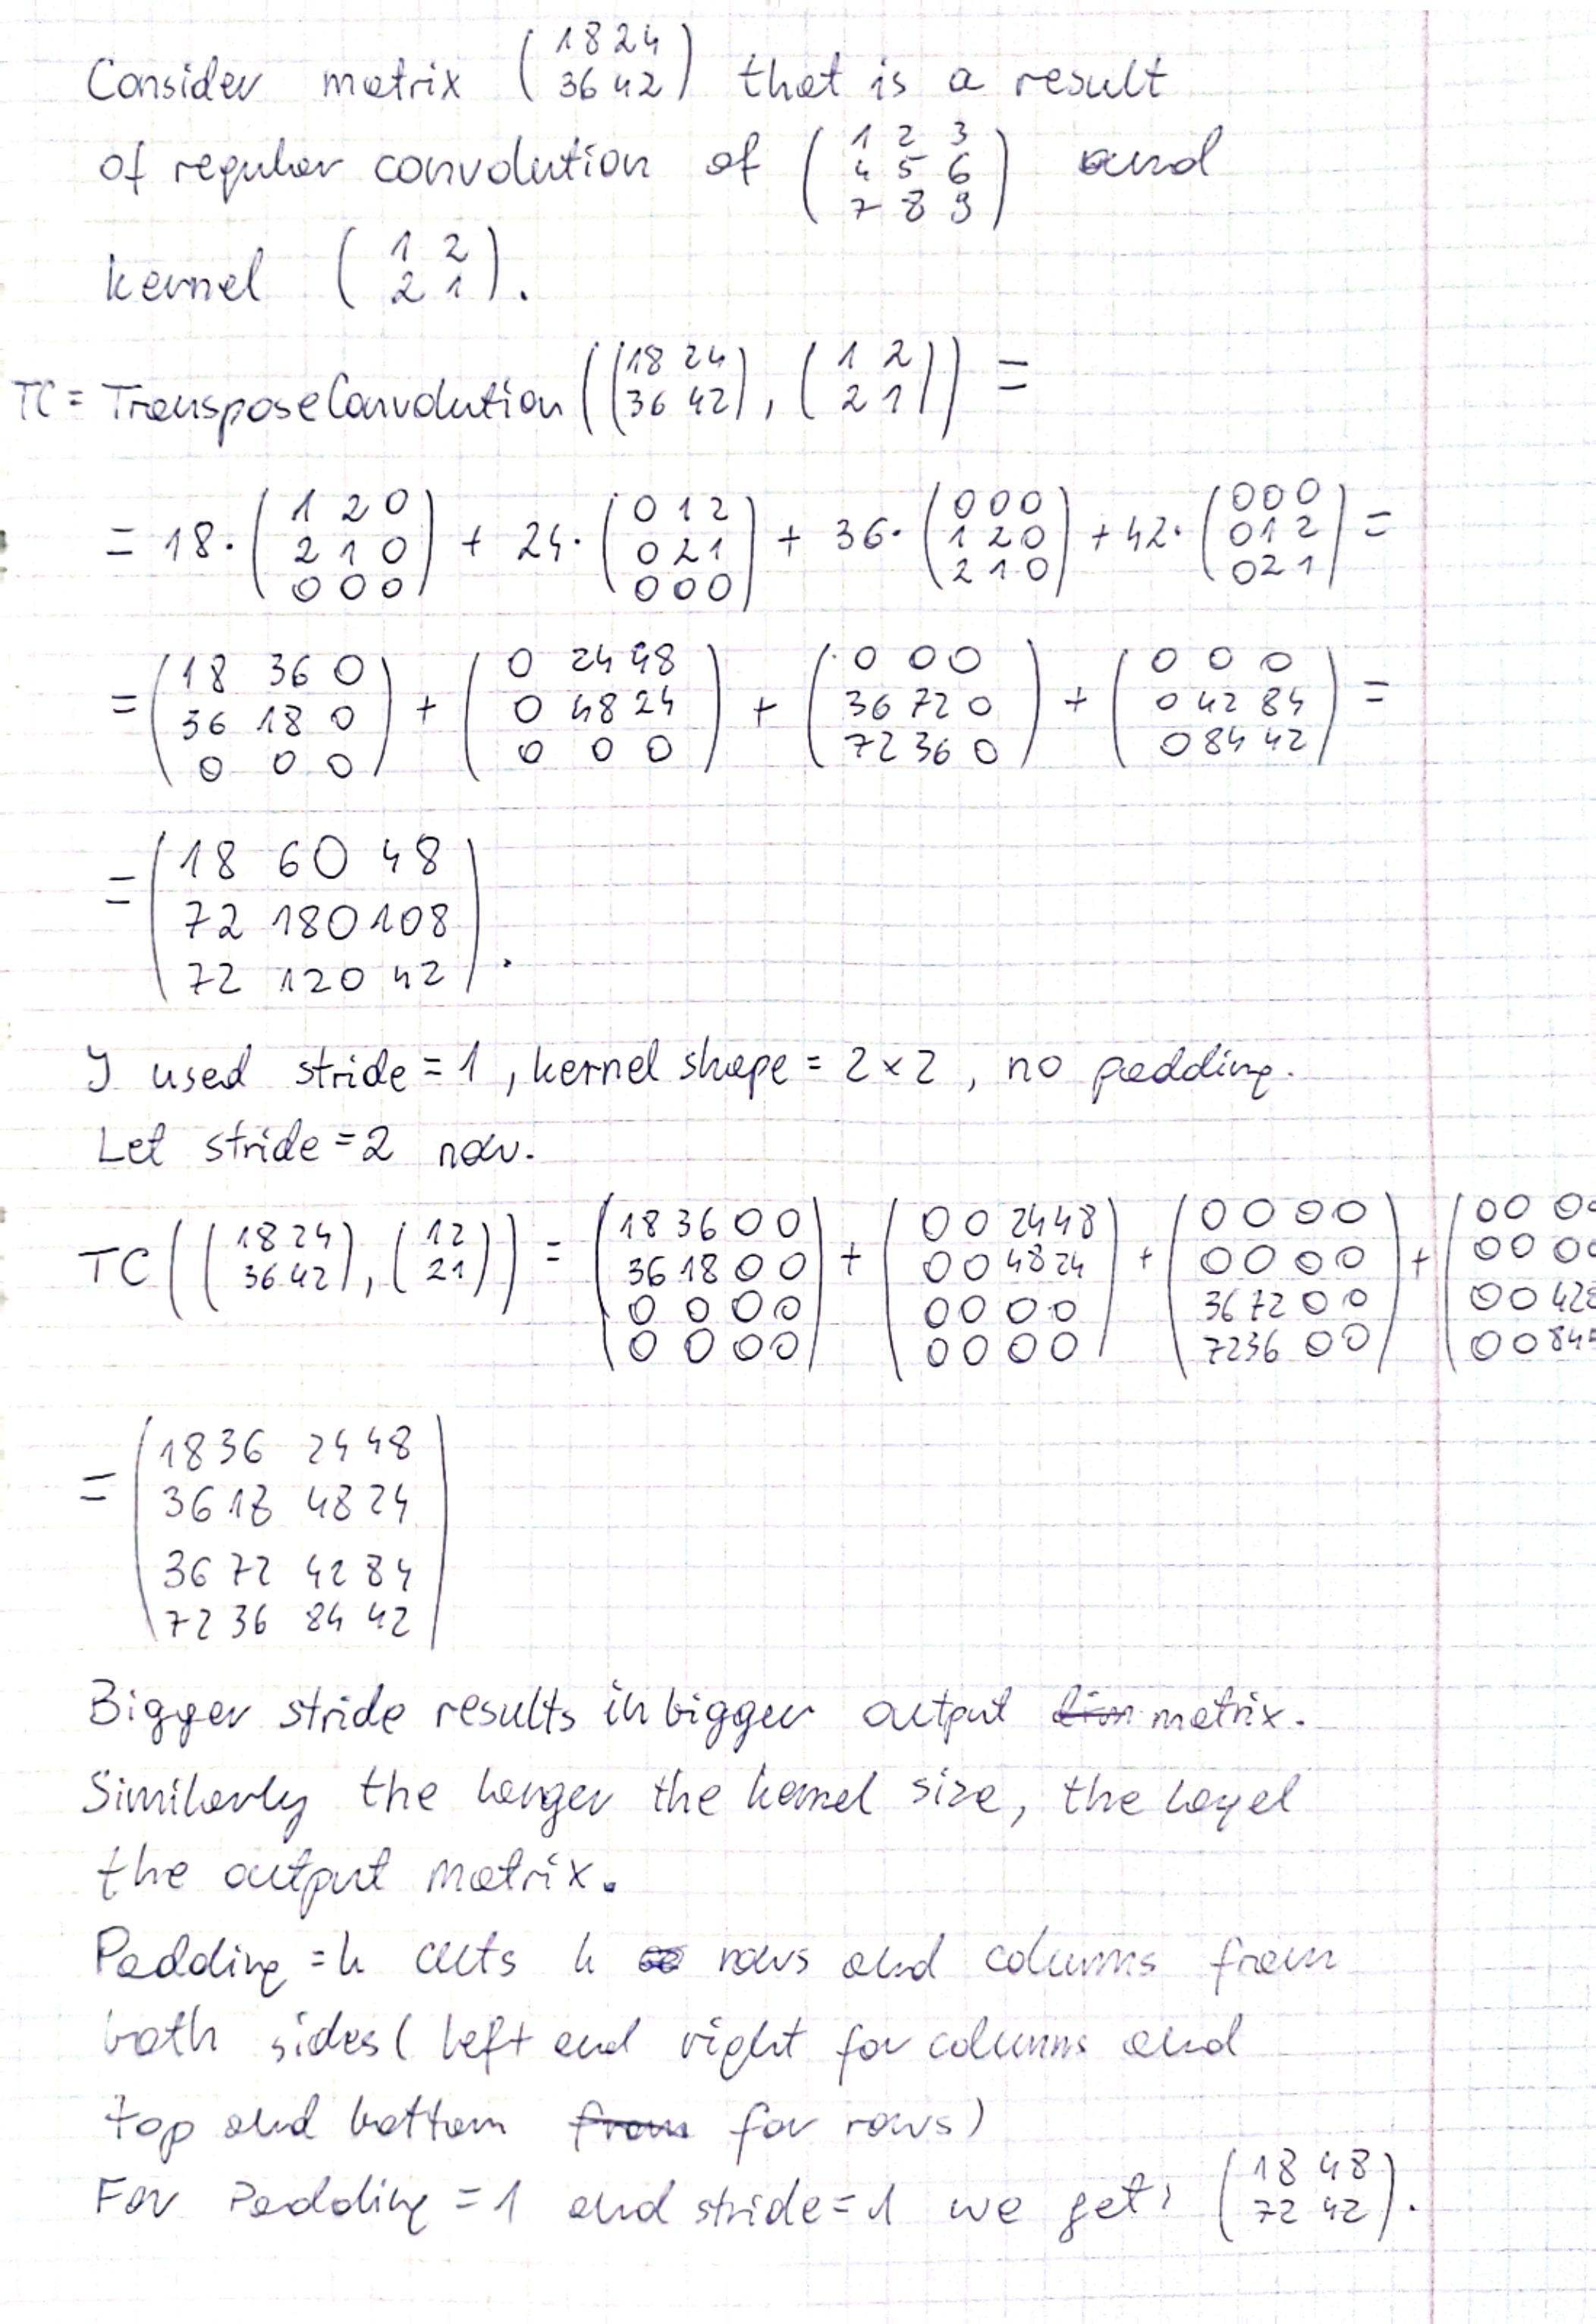 Consider matrix (18 24 / 36 42) that is a result
of regular convolution of (1 2 3 / 4 5 6 / 7 8 9) and
kernel (1 2 / 2 1).
TC = TransposeConvolution ((18 24 / 36 42), (1 2 / 2 1)) =
= 18 · (1 2 0 / 2 1 0 / 0 0 0) + 24 · (0 1 2 / 0 2 1 / 0 0 0) + 36 · (0 0 0 / 1 2 0 / 2 1 0) + 42 · (0 0 0 / 0 1 2 / 0 2 1) =
= (18 36 0 / 36 18 0 / 0 0 0) + (0 24 48 / 0 48 24 / 0 0 0) + (0 0 0 / 36 72 0 / 72 36 0) + (0 0 0 / 0 42 84 / 0 84 42) =
= (18 60 48 / 72 180 108 / 72 120 42).
I used stride = 1, kernel shape = 2 × 2, no padding.
Let stride = 2 now.
TC ((18 24 / 36 42), (1 2 / 2 1)) = (18 36 0 0 / 36 18 0 0 / 0 0 0 0 / 0 0 0 0) + (0 0 24 48 / 0 0 48 24 / 0 0 0 0 / 0 0 0 0) + (0 0 0 0 / 0 0 0 0 / 36 72 0 0 / 72 36 0 0) + (0 0 0 0 / 0 0 0 0 / 0 0 42 8 / 0 0 84
= (18 36 24 48 / 36 18 48 24 / 36 72 42 84 / 72 36 84 42)
Bigger stride results in bigger output matrix.
Similarly the larger the kernel size, the
the output matrix.
Padding = k cuts k rows and columns from
both sides (left and right for columns and
top and bottom for rows)
For Padding = 1 and stride = 1 we get: (18 48 / 72 42).